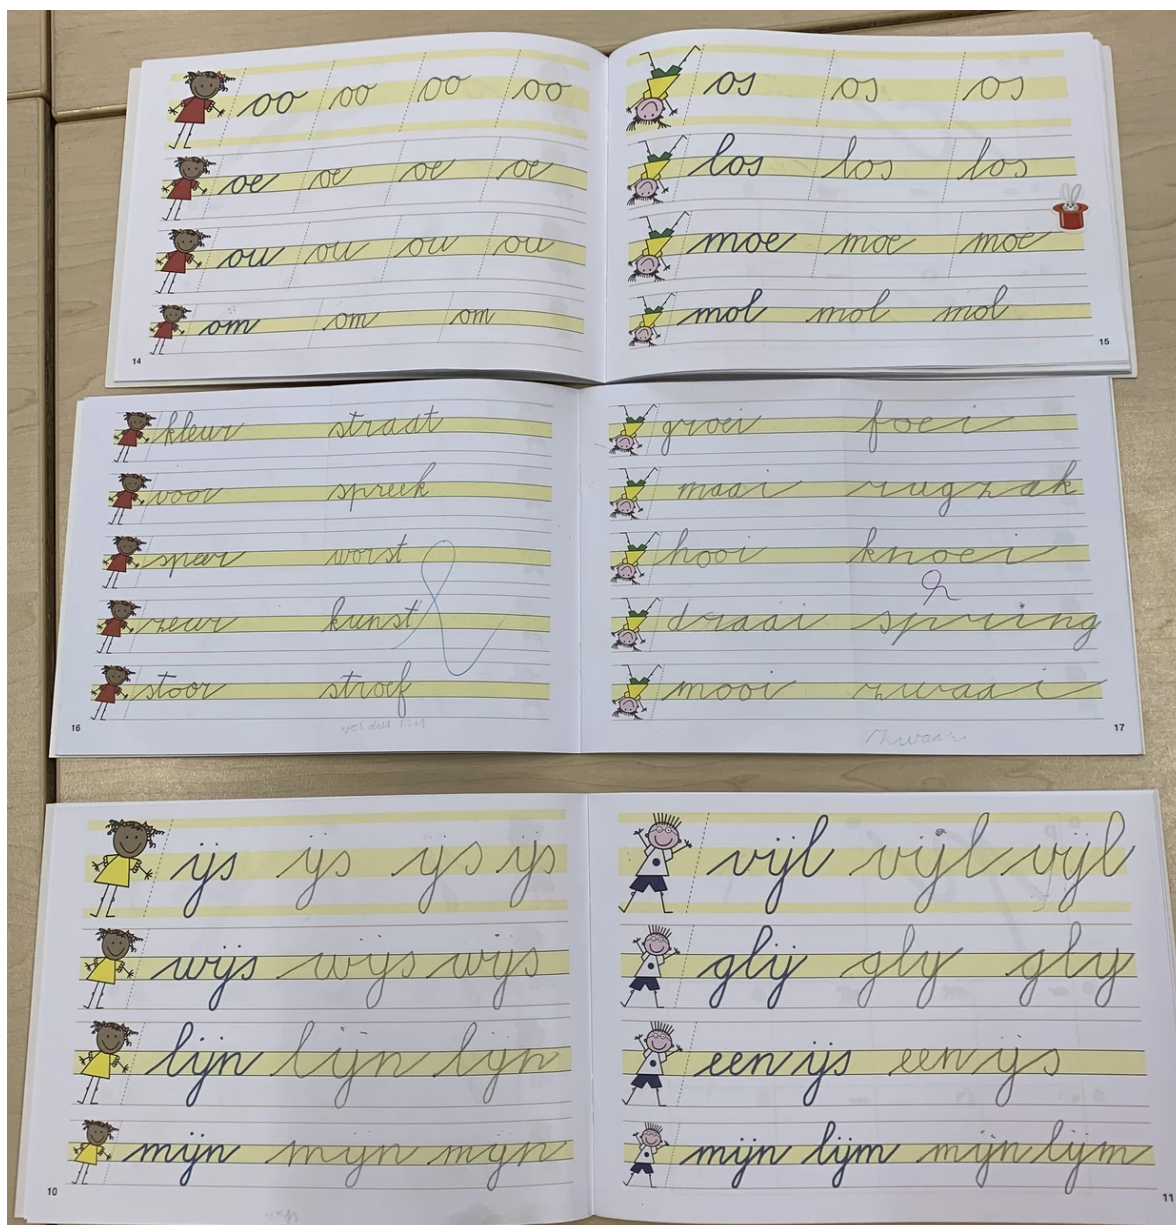 oo oo oo oo
oe oe oe oe
ou ou ou ou
om om om
14
os os os
los los los
moe moe moe
mol mol mol
15
kleur straat
voor spreek
speer worst
zeur kunst
stoor stroef
16
groei foei
maai rugzak
hooi knoei
draai spring
mooi zwaai
zwaai
17
ijs ijs ijs ijs
wijs wijs wijs
lijn lijn lijn
mijn mijn mijn
10
vijl vijl vijl
glij glij glij
een ijs een ijs
mijn lijm mijn lijm
11